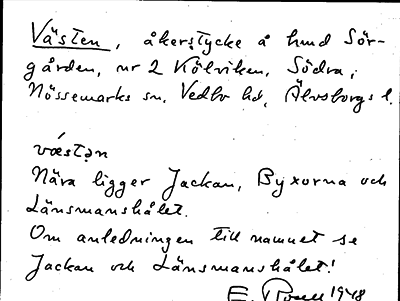 Västen, åkerstycke å hmd Sör-
gården, nr 2 Kölviken, Södra,
Nössemarks sn, Vedbo hd, Älvsborgs l.
vǽstən
Nära ligger Jackan, Byxorna och
Länsmanshålet.
Om anledningen till namnet se
Jackan och Länsmanshålet!
E. 1948